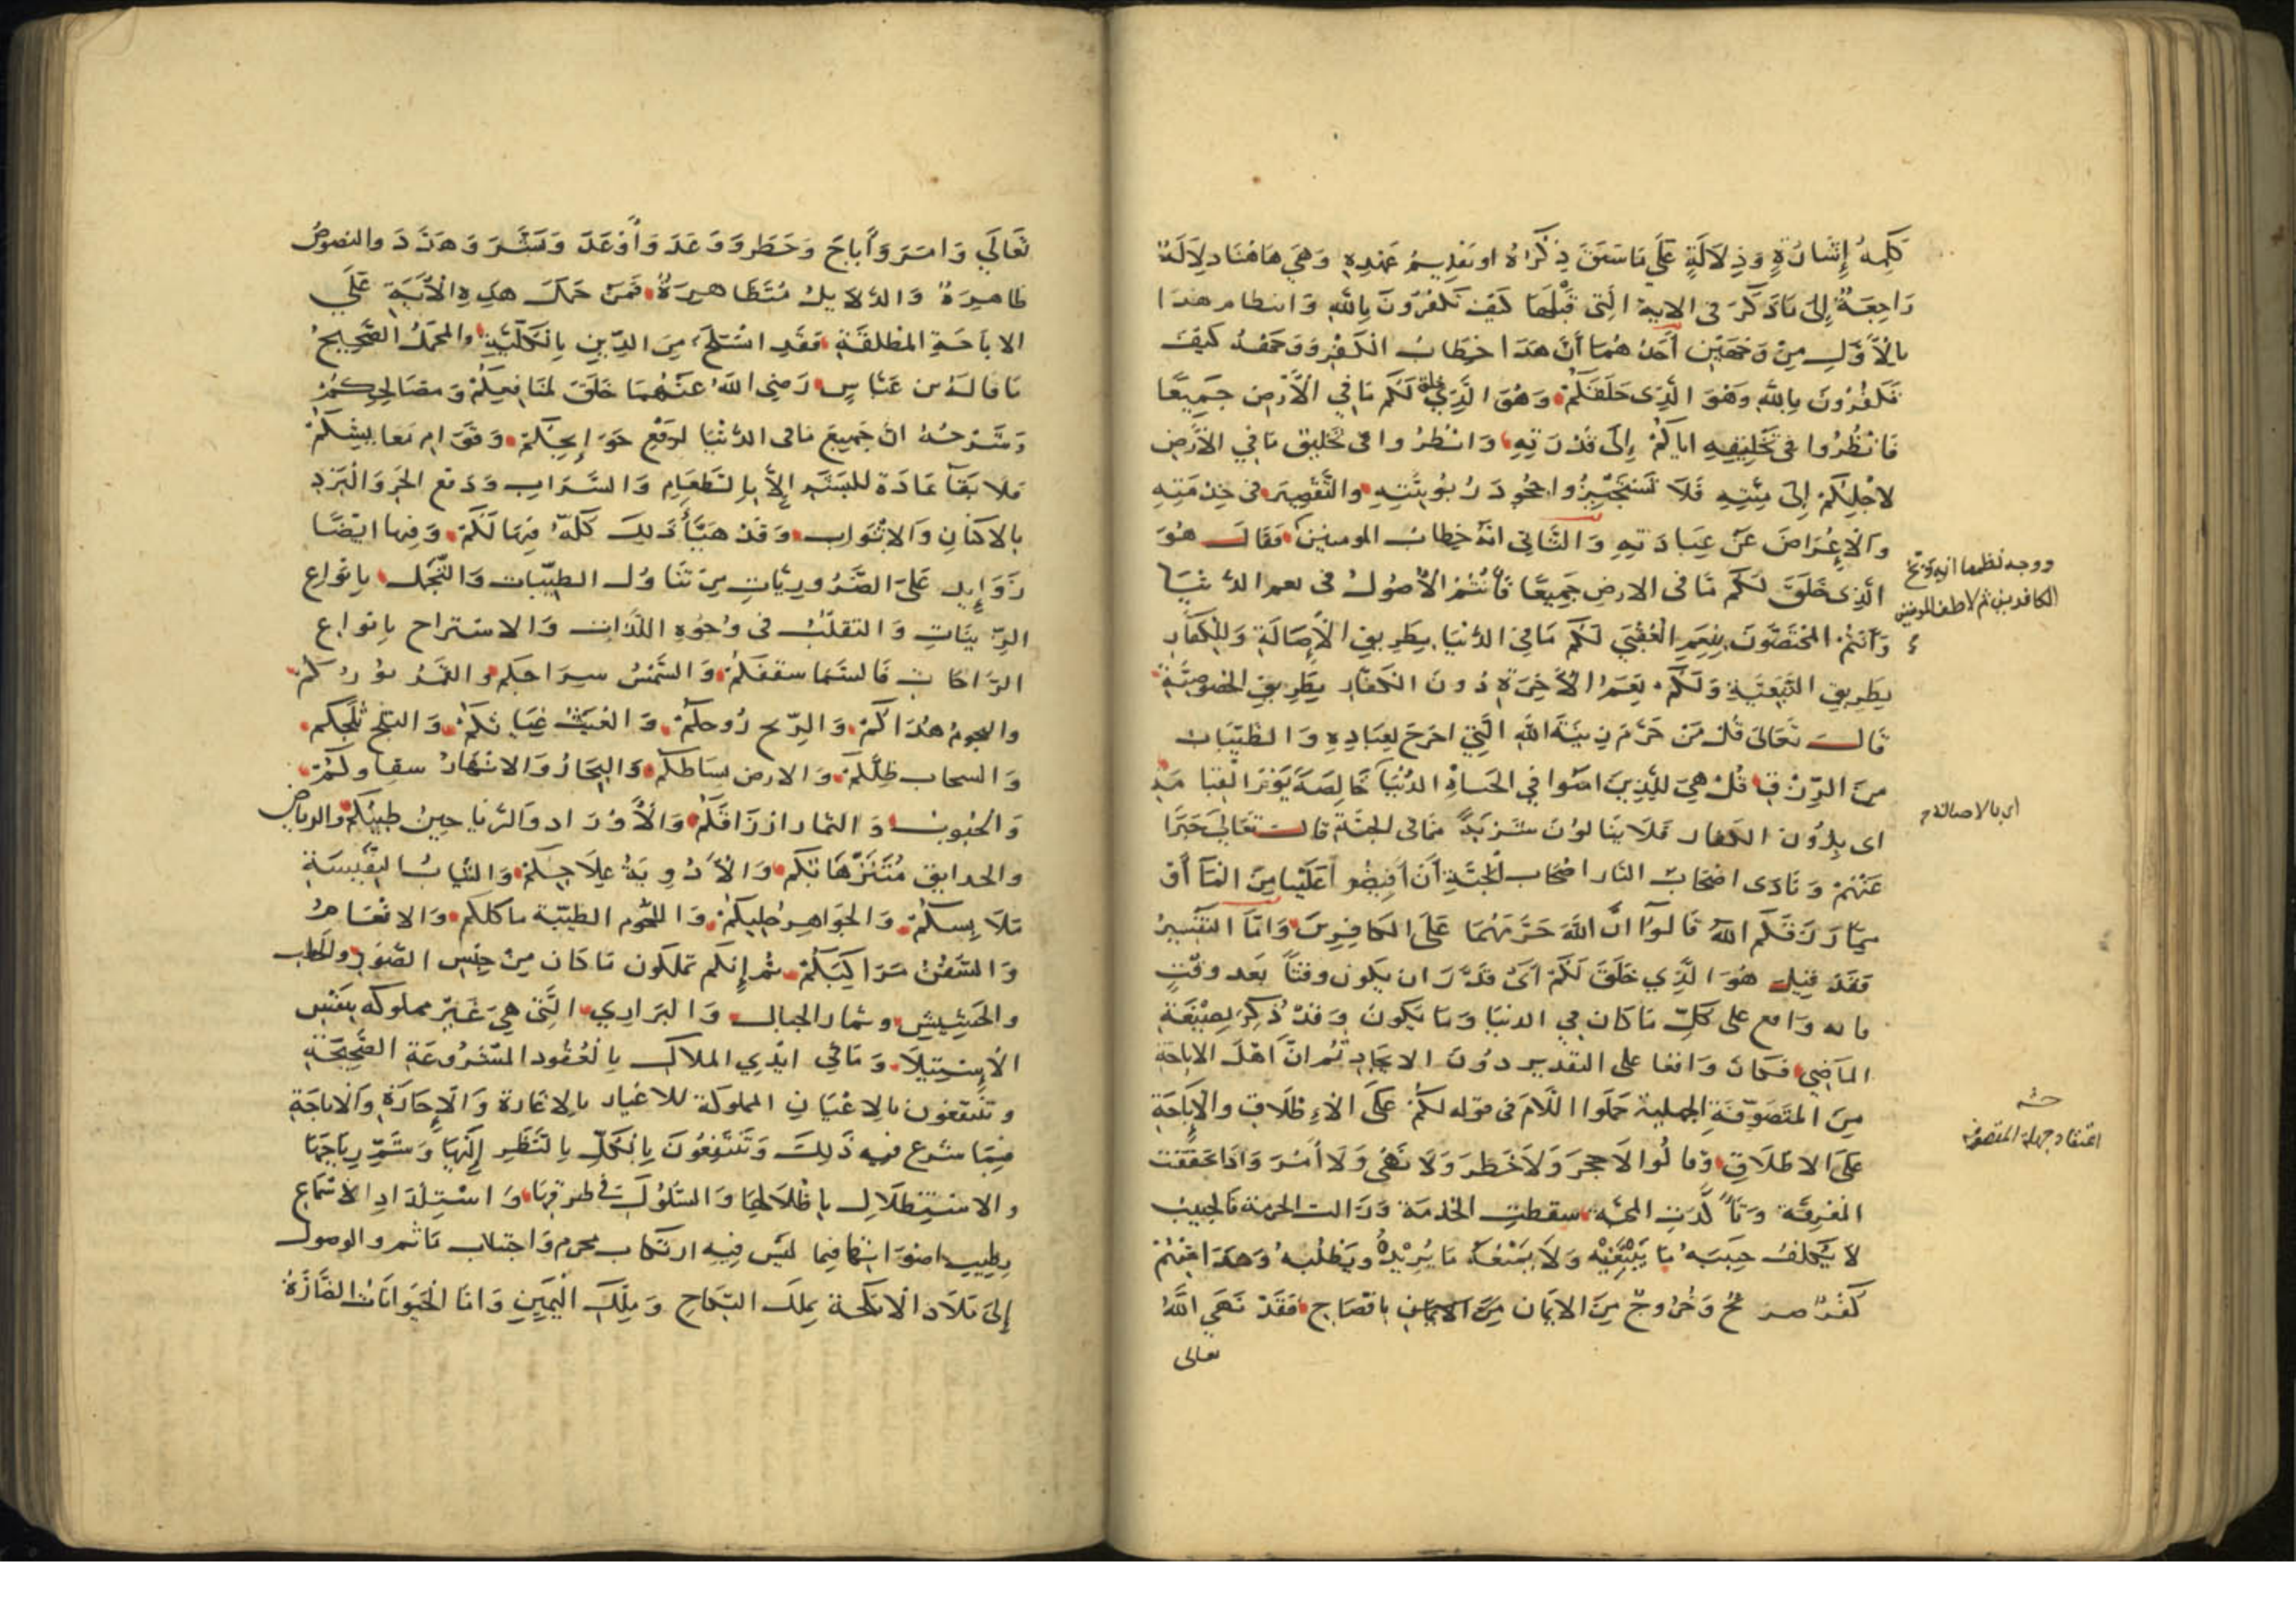 كَلِمَةُ إِشَارَةٍ وَدِلَالَةٍ عَلَى مَا سَبَقَ ذِكْرُهُ او تقديم عهده وَهِيَ هَاهُنَا دِلَالَةٌ
رَاجِعَةٌ إِلَى مَا ذَكَرَ فى الاية الَّتِى قَبْلَهَا كَيْفَ تَكْفُرُونَ بِاللهِ وَانتظام هذا
بالأوَّلِ مِنْ وَجْهَيْنِ أَحَدُهُمَا أَنَّ هَذَا خِطَابُ الْكَفَرَةِ وَوَجْهُهُ كَيْفَ
تَكْفُرُونَ بِاللهِ وَهُوَ الَّذِى خَلَقَكُمْ وَهُوَ الَّذِي خلق لَكُمْ مَا فِي الْأَرْضِ جَمِيعًا
فَانْظُرُوا فى تَخْلِيقِهِ اياكُمْ إِلَى قُدْرَتِهِ وَانْظُرُوا فى تخليق مَا فِي الْأَرْضِ
لاجْلِكُمْ إِلَى مِنَّتِهِ فَلَا تَسْتَجِيزُوا جُحُودَ رُبُوبِيَّتِهِ والتَّقْصِيرَ فى خِدْمَتِهِ
وَالْإِعْرَاضَ عَنْ عِبَادَتِهِ وَالثَّانِى انَّهُ خِطَابُ المومنين فَقَالَ هُوَ
الَّذِى خَلَقَ لَكُمْ مَا فى الارضِ جَمِيعًا فَأَنْتُمُ الْأُصُولُ فى نعم الدُّنْيَا
وَأَنْتُمُ المُخْتَصُّونَ بِنِعَمِ الْعُقْبَى لَكُمْ مَا فِى الدُّنْيَا بِطَرِيقِ الْأَصَالَةِ وَلِلْكُفَّارِ
بِطَرِيقِ التَّبَعِيَّةِ وَلَكُمْ نِعَمُ الْآخِرَةِ دُونَ الْكُفَّارِ بِطَرِيقِ الخصوصيَّةِ
قَالَ تَعَالَى قُلْ مَنْ حَرَّمَ زِينَةَ اللهِ الَّتِي اخرجَ لِعِبَادِهِ وَالطَّيِّبَاتِ
مِنَ الرِّزْقِ قُلْ هِيَ لِلَّذِينَ امَنُوا فِي الحَيَاةِ الدُّنْيَا خَالِصَةً يَوْمَ القيا مة
اى بِدُونِ الكفار فَلَا يَنَالُونَ شربةً ممَّا فى الجَنَّةِ قالَ تعَالَى خَبَرًا
عَنْهُمْ وَنَادَى اصْحَابُ النَّارِ اصْحَابَ الجَنَّةِ أَنْ أَفِيضُوا عَلَيْنَا مِنَ الْمَآءِ أَوْ
مِمَّا رَزَقَكُمُ اللهُ قَالُوا انَّ اللهَ حَرَّمَهُمَا عَلَى الْكَافِرِينَ وَامَّا التَّفْسِيرُ
فَقَدْ قِيلَ هُوَ الَّذِي خَلَقَ لَكُمْ اَىْ قَدَّرَ ان يَكُونَ وقتًا بَعد وقْتٍ
فانه وَاقع على كُلِّ مَا كَانَ فِي الدنيا وَمَا يَكُونُ وَقَدْ ذُكِرَ بِصِيْغَةِ
المَاضِي فكَانَ وَاقعا على التقدير دُونَ الايجادِ ثُمَّ انَّ اهْلَ الاباحَةِ
مِنَ المتَصَوِّفَةِ الجهلية حَمَلُوا اللَّامَ فى قوله لكُمْ عَلَى الاطْلَاقِ وَالْإِبَاحَةِ
عَلَى الاطْلَاقِ وَقَالُوا لَا حِجْرَ وَلَا حَظَرَ وَلَا نَهْىَ وَلَا أَمْرَ وَاذَا تَحَقَّقَتِ
المَعْرِفَة وَتَأَكَّدَتِ المحبَّة سقطتِ الخِدْمَة وَزَالت الحرمة فَالحَبِيبُ
لَا يُكَلِّفُ حَبِيبَهُ مَا يُتْعِبُهُ وَلَا يَمْنَعُهُ مَا يُرِيْدُهُ ويَطْلُبُهُ وَهَذَا مِنْهُمْ
كُفْرٌ صريحٌ وَخُرُوجٌ مِنَ الايمَانِ بافْصَاحٍ فَقَدْ نَهَى اللهُ
تعالى
ووجه نظمها انه وبخ
الكافرين ثم لاطف المومنين
اى بالاصالة
اعتقاد جهلة المتصوفه
تَعَالَى وَامَرَ وَأَبَاحَ وَحَظَرَ وَوَعَدَ وَأَوْعَدَ وَبَشَّرَ وَهَدَّدَ والنصوصُ
ظاهِرَةٌ وَالدَّلَايِلُ مُتَظَاهِرَةٌ فَمَنْ حَمَلَ هَذِهِ الْآيَةِ عَلَى
الابَاحَةِ المُطلقَةِ فَقَدِ انْسَلَخَ مِنَ الدِّينِ بِالْكُلِّيَّةِ والمحمَلُ الصَّحِيحُ
مَا قَالَهُ بن عَبَّاسٍ رَضِيَ اللهُ عَنْهُمَا خَلَقَ لَمنَافِعِكُمْ وَمصَالِحِكُمْ
وَشَرْحُهُ انَّ جَمِيعَ مَا فى الدُّنْيَا لرَفْعِ حَوَايِجِكُمْ وَقِوَامِ مَعَايِشِكُمْ
فَلَا بَقَآ عَادَة للبَشَرِ إِلَّا بِالطَّعَامِ وَالشَّرَابِ وَدَفع الحَرِّ وَالْبَرْدِ
بالاكنَانِ وَالاثْوَابِ وَقَدْ هَيَّأَ ذَلِكَ كُلَّهُ فِيْهَا لَكُمْ وَفيها ايْضًا
زَوَايِد عَلَى الضَّرُورِيَّاتِ مِنْ تَنَاوُلِ الطَّيِّبات وَالتَّجَمُّلِ بِانْوَاعِ
الزِّينَاتِ وَالتقلُّبِ فى وُجُوهِ اللَّذَّاتِ وَالاسْترَاح بِانْوَاعِ
الرَّاحَاتِ فَالسَّمَا سقفكُمْ وَالشَّمْسُ سِرَاجكم والقَمَرُ نُورُكُمْ
والنجومُ هُدَاكُمْ وَالرِّيحُ رُوحكُمْ وَالغَيْثُ غِيَاثكُمْ وَالثلج ثَلْجكم
وَالسحاب ظِلُّكُمْ وَالارض بِسَاطكُمْ وَالبِحَارُ وَالانْهَارُ سقاوكُمْ
وَالحُبُوبُ وَالثمار ارْزَاقكُمْ وَالْأَوْرَاد وَالرَّيَاحِينُ طيبُكُمْ والرياض
والحدايق مُتَنَزَّهَاتكُم وَالْأَدْوِيَةُ عِلَاجكُمْ وَالثِّيَابُ النَّفِيسَة
مَلَابِسكُمْ وَالجَوَاهِرُ حليكُمْ وَاللُّحُوم الطيّبة مآكلكم وَالانْعَامُ
وَالسُّفُنُ مَرَاكِبكُمْ ثُمَّ إِنَّكم تملكون مَا كَان مِنْ جنْسِ الصُّيُودِ والحَطبِ
والحَشِيشِ وثمار الجبالِ وَالبرَاري الَّتِى هِيَ غَيْرُ مملوكه بِنَفْسِ
الْإِسْتِيْلَا وَمَا فِي ايْدِي الملاكِ بِالْعُقُودِ المَشْرُوعَةِ الصَّحِيحَةِ
وتنْتَفعُون بالاعْيَانِ المملوكة للاغيار بِالاعَارَةِ وَالْإِجَارَةِ وَالاباحَةِ
فِيمَا شرع فِيه ذَلِكَ وَتَنْتَفِعُونَ بِالْكُلِّ بِالنَّظَرِ إِلَيْهَا وَشَمِّ رِيَاحِهَا
والاسْتِظلَالِ بِاظْلَالِهَا وَالسُّلُوكِ في طرقِهَا وَاسْتِلْذَاذِ الاسْمَاعِ
بِطِيبِ اصْوَاتِهَا فِيما لَيْسَ فِيهِ ارتكَاب محرمٍ وَاجتلاب مَاثمٍ والوصول
إِلَى مَلَاذ الْانكحة بِملك النِّكَاحِ وَمِلْكِ الْيَمِينِ وَامَّا الْحَيَوَانَاتُ الضَّارَّةُ